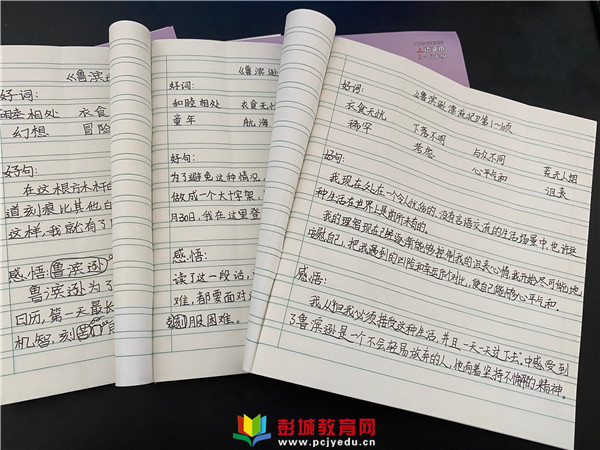 《鲁滨逊
好词:
和睦相处 衣食
幻想 冒险
好句:
在这根方木杆
道刻痕比其他
这样,我就有了
感悟:鲁滨逊
鲁滨逊为了
日历,第一天最长
机智,刻苦
《鲁滨逊
好词:
和睦相处 衣食无忧
童年 航海
好句:
为了避免这种情况,
做成一个大十字架,
月30日,我在这里登
感悟:
读了这一段话,
难,都要面对
服困难。
《鲁滨逊漂流记》第1一1页
好词:
衣食无忧 下落不明 与众不同 荒无人烟
稀罕 若想 心平气和 沮丧
好句:
我现在处在一个令人忧伤的,没有言语交流的生活场景中,也许这
种生活在世界上是前所未有的。
我的理智现在已经逐渐能够控制我的沮丧心情,我开始尽可能地
安慰自己,把我遇到的凶险和幸运作个对比,使自己能够心平气和。
感悟:
我从但我必须接受这种生活,并且一天一天过下去。中感受到
了鲁滨逊是一个不会轻易放弃的人,他有着坚持不懈的精神。
彭城教育网
www.pcjyedu.cn